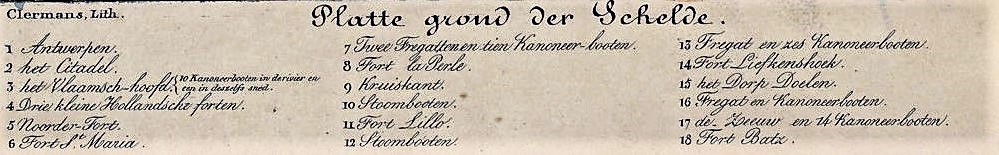 Clermans, Lith.
Platte grond der Schelde.
1 Antwerpen.
2 het Citadel.
3 het Vlaamsch-hoofd. {10 Kanoneerbooten in de rivier en
een in deszelfs sned.
4 Drie kleine Hollandsche forten.
5 Noorder-Fort.
6 Fort St. Maria.
7 Twee Fregatten en tien Kanoneer-booten.
8 Fort la Perle.
9 Kruiskant.
10 Stoombooten.
11 Fort Lillo.
12 Stoombooten.
13 Fregat en zes Kanoneerbooten.
14 Fort Liefkenshoek.
15 het Dorp Doelen.
16 Fregat en Kanoneerbooten.
17 de Zeeuw en 14 Kanoneerbooten.
18 Fort Batz.